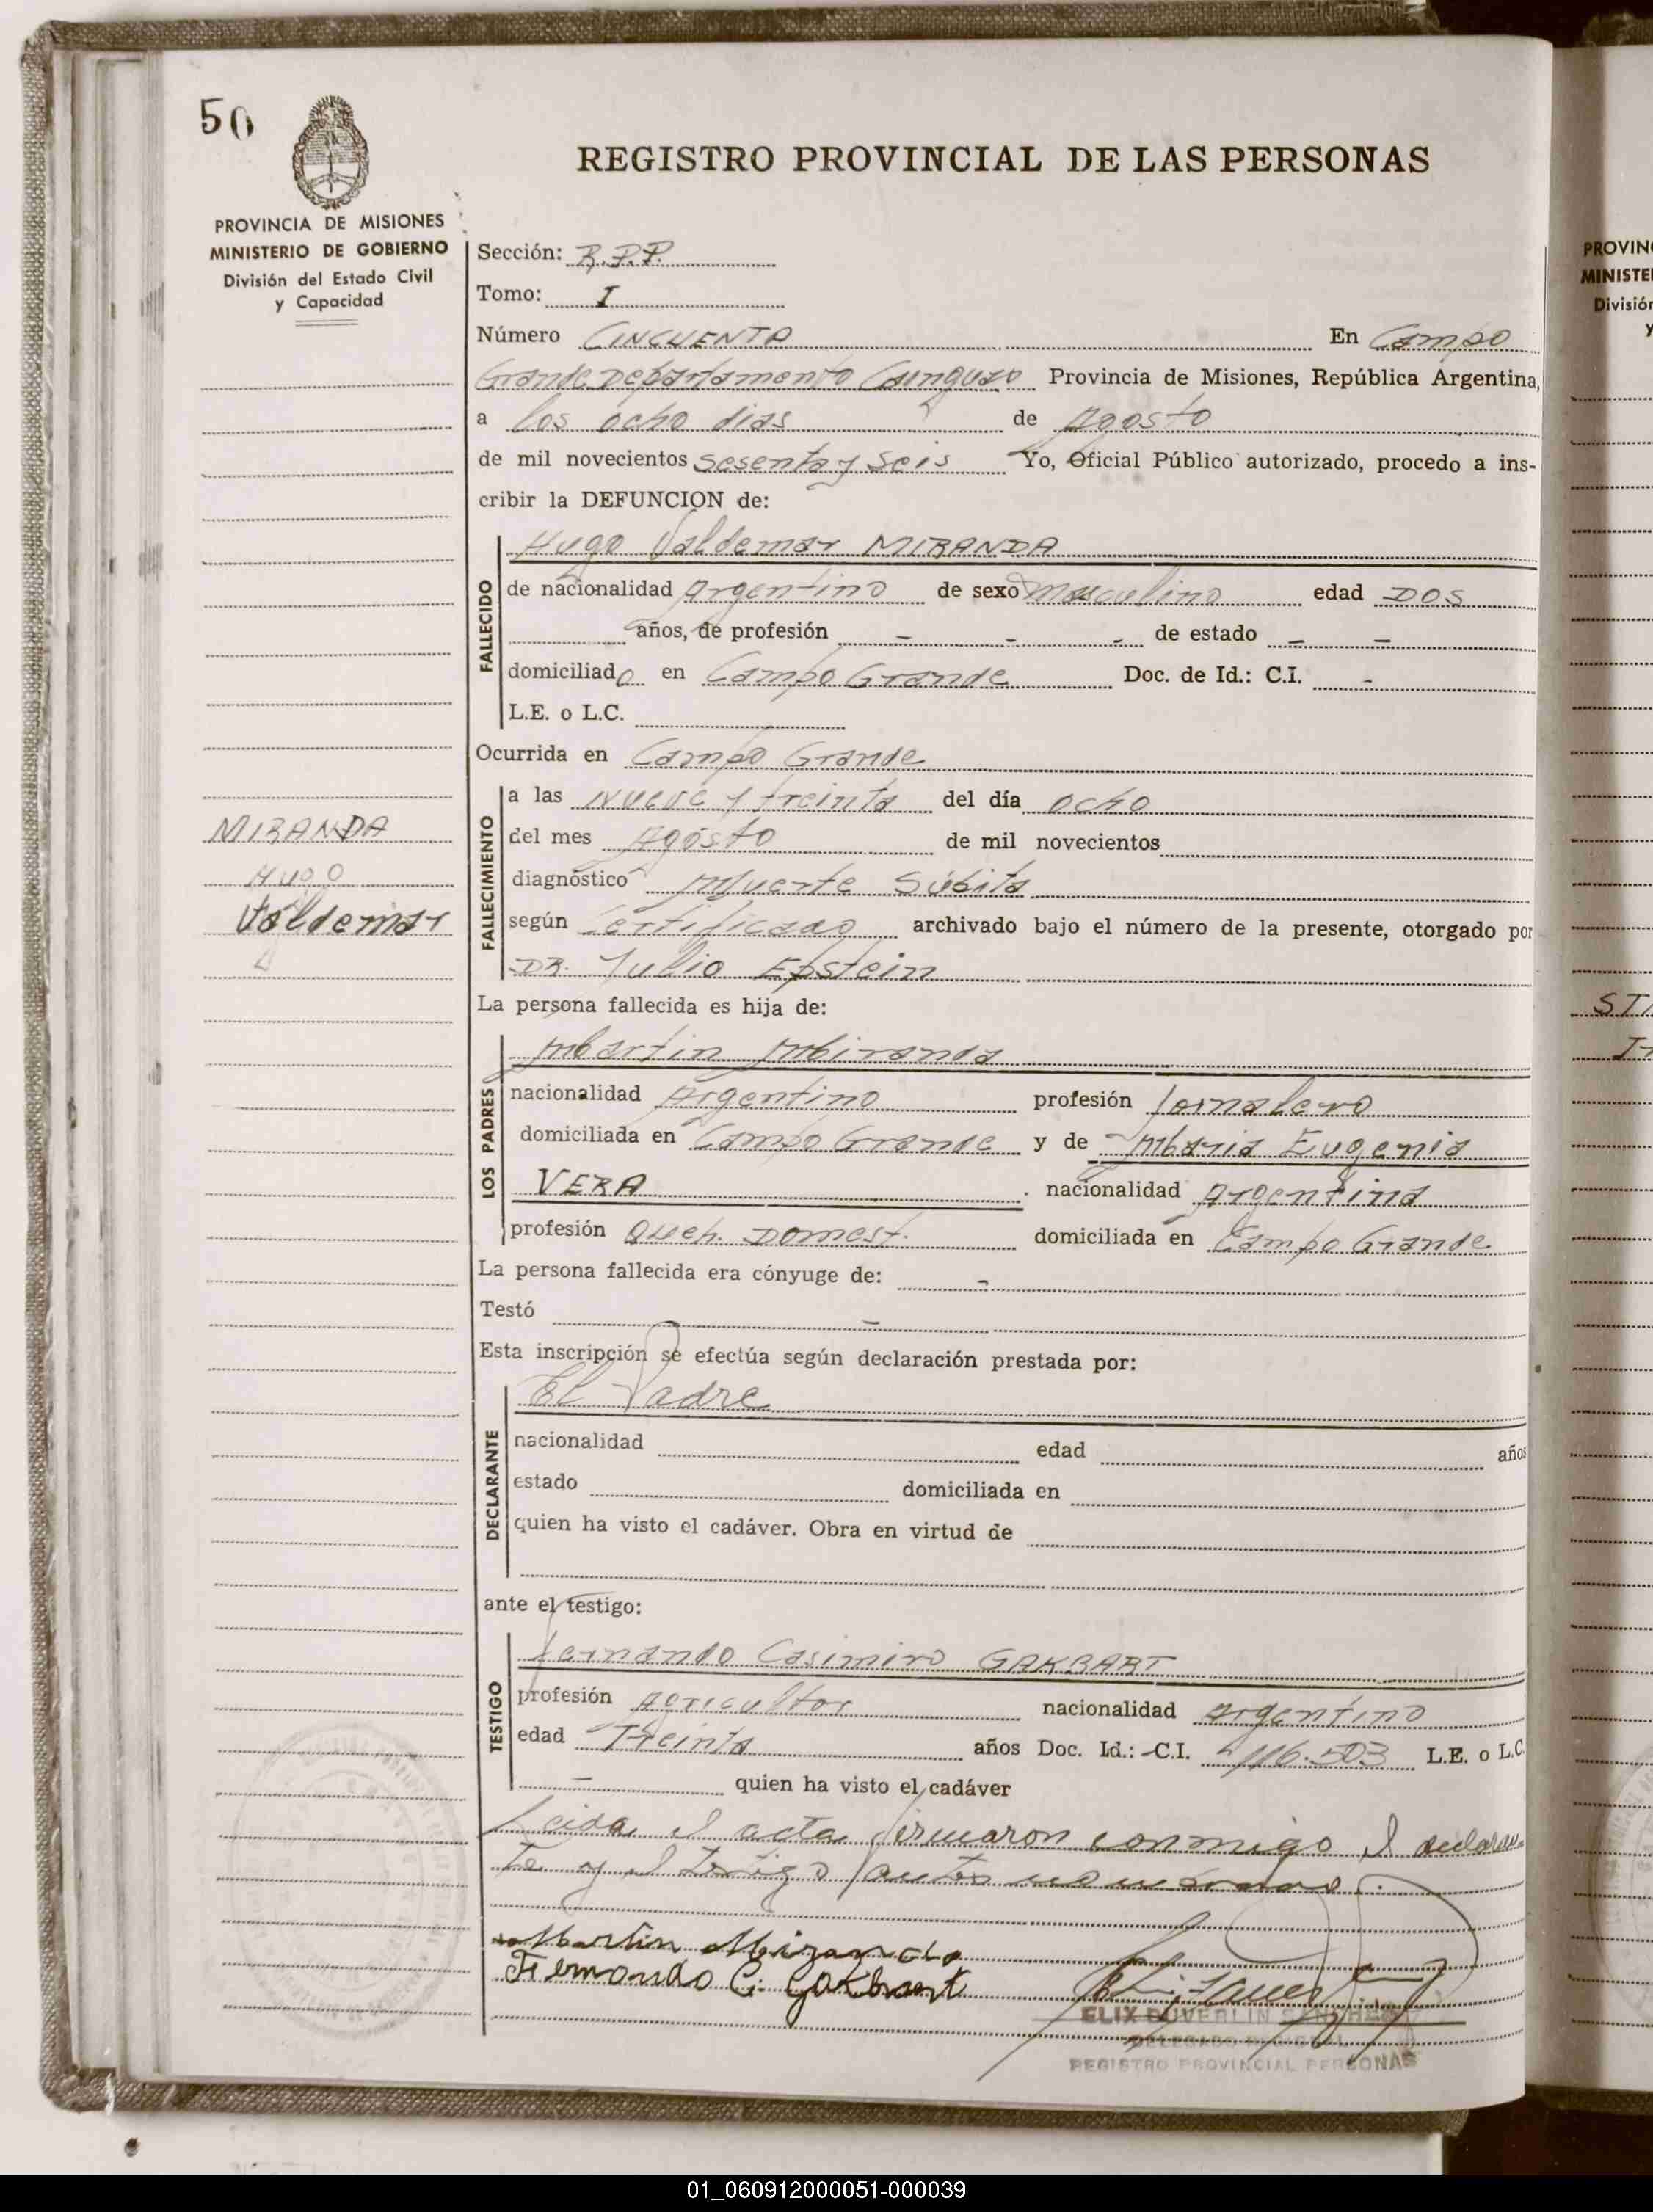 50
REGISTRO PROVINCIAL DE LAS PERSONAS
PROVINCIA DE MISIONES
MINISTERIO DE GOBIERNO
División del Estado Civil
y Capacidad
Sección: R.P.P.
Tomo: I
Número CINCUENTA En Campo
Grande Departamento Cainguas Provincia de Misiones, República Argentina,
a los ocho dias de Agosto
de mil novecientos sesenta y seis Yo, Oficial Público autorizado, procedo a ins-
cribir la DEFUNCION de:
FALLECIDO
Hugo Valdemar MIRANDA
de nacionalidad Argentino de sexo masculino edad DOS
años, de profesión - - - de estado - -
domiciliado en Campo Grande Doc. de Id.: C.I. -
L.E. o L.C.
Ocurrida en Campo Grande
FALLECIMIENTO
a las nueve y treinta del día ocho
del mes Agosto de mil novecientos
diagnóstico Muerte Súbita
según Certificado archivado bajo el número de la presente, otorgado por
DR. Julio Epstein
MIRANDA
Hugo
Valdemar
La persona fallecida es hija de:
LOS PADRES
Martin Miranda
nacionalidad Argentino profesión Jornalero
domiciliada en Campo Grande y de Maria Eugenia
VERA nacionalidad Argentina
profesión Queh. Domest. domiciliada en Campo Grande
La persona fallecida era cónyuge de: -
Testó -
Esta inscripción se efectúa según declaración prestada por:
DECLARANTE
El Padre
nacionalidad edad años
estado domiciliada en
quien ha visto el cadáver. Obra en virtud de
ante el testigo:
TESTIGO
Fernando Casimiro GAKBART
profesión Agricultor nacionalidad Argentino
edad Treinta años Doc. Id.: C.I. 116.503 L.E. o L.C.
- quien ha visto el cadáver
Leida el acta firmaron conmigo el declaran
te y el testigo
Martin Miranda
Fernando C. Gakbart
REGISTRO PROVINCIAL PERSONAS
PROVIN
MINISTE
División
y
01_060912000051-000039